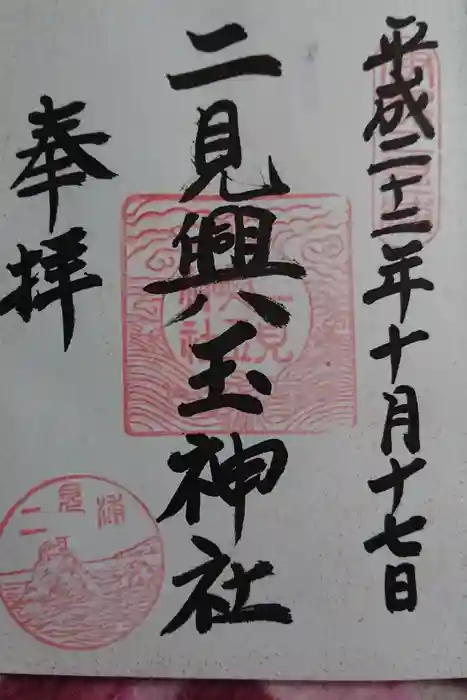 平成二十二年十月十七日
二見興玉神社
奉拝
二見浦